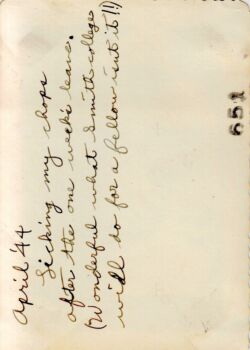 April '44
Licking my chops
after the one weeks leave.
(Wonderful what Smith college
will do for a fellow isnt it!!)
651